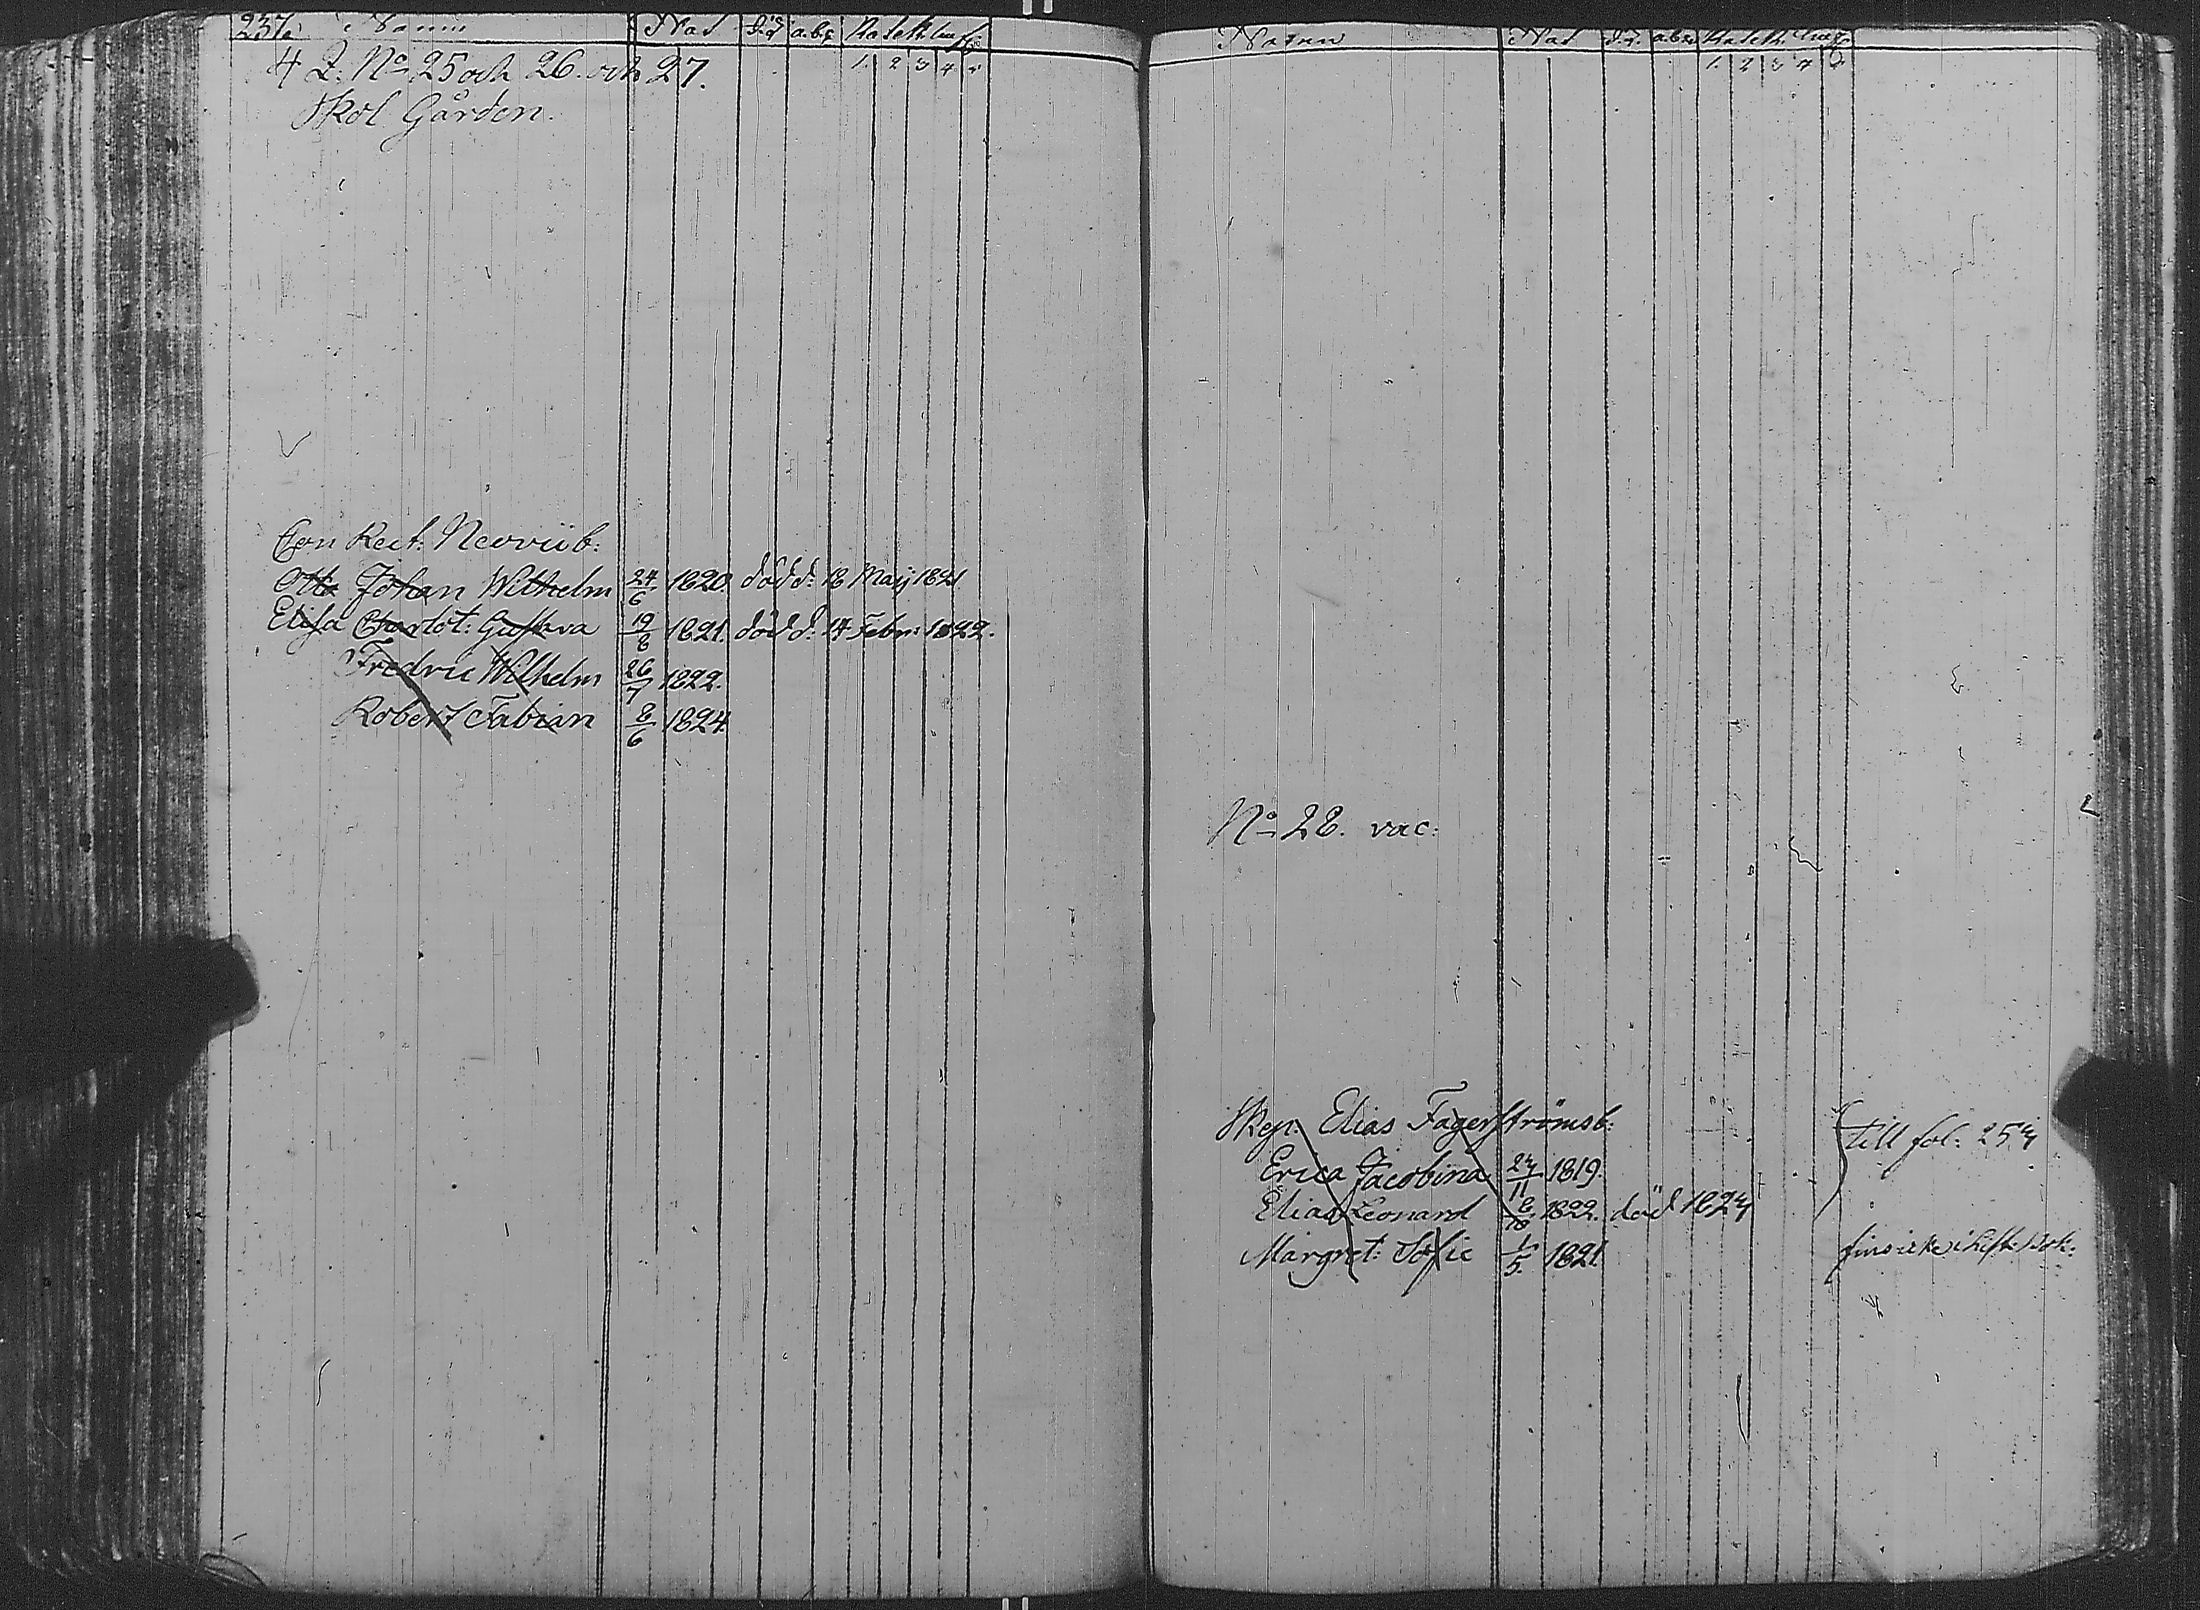 237. Namn Nad död abs.
1. 2 3 4
4 Q. No 25 och 26. och 27.
Skol Gården.
Con Rect: b:
Otto Johan Wilhelm 24/6 1820. död d: 18 Maij 1821
Elisa Charlot: Gustava 19/8 1821. död d: 14 Febr: 1822.
Fredric Wilhelm 26/7 1822.
Robert Fabian 8/6 1824.
Namn Nad abs.
1. 2 3 4
No 28. vac:
Skep: Elias Fagerströms b:
till fol: 254
Erica Jacobina 24/11 1819.
Elias Leonard 8/10 1822. död 1824
Margret: Sofie 1/5. 1821.
fins icke i